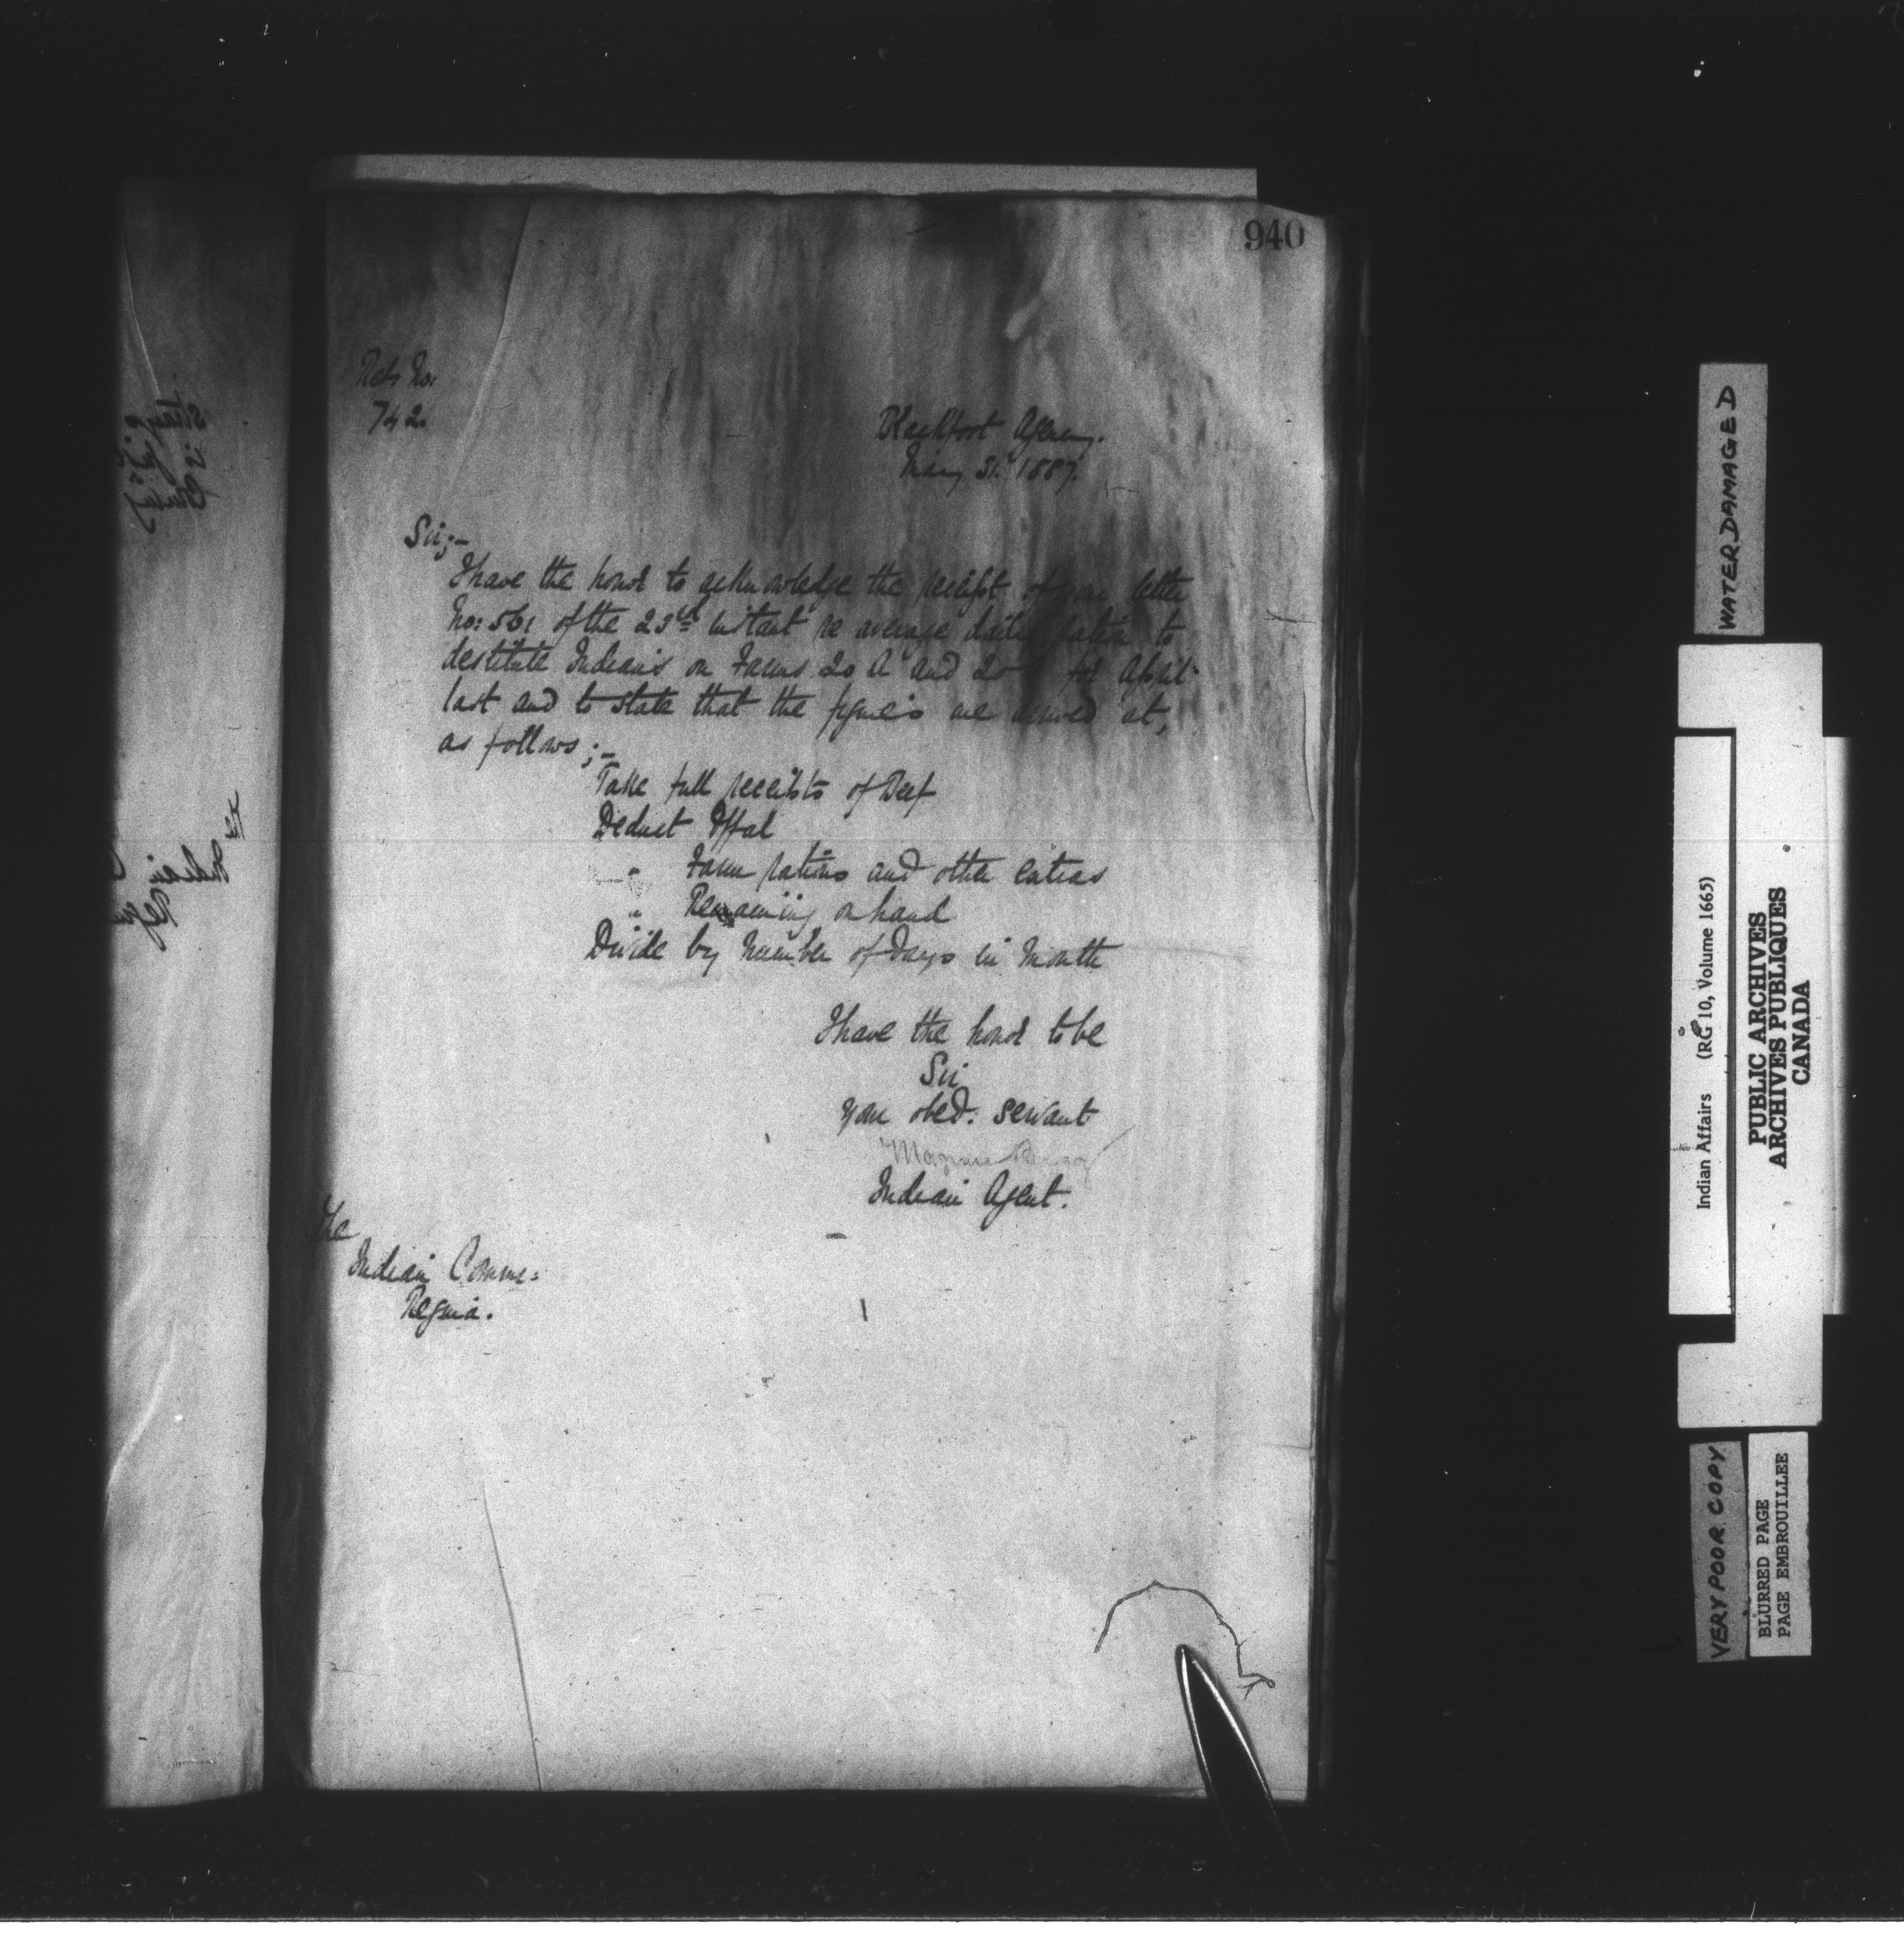 940
Reb. No:
742
Blackfoot Agency.
May 31. 1887.
Sir;-
I have the honor to acknowledge the receipt of your letter
No: 561 of the 23rd instant re average daily ration to
destitute Indians on Farms 20 A and 20 for April
last and to state that the figures are arrived at,
as follows;-
Take full receipts of Beef
Deduct Offal
" Farm rations and other extras
" Remaining on hand
Divide by number of days in Month
I have the honor to be
Sir
your obed. servant
Magnus Begg
Indian Agent.
The
Indian Commr:
Regina.
WATERDAMAGED
Indian Affairs (RG 10, Volume 1665)
PUBLIC ARCHIVES
ARCHIVES PUBLIQUES
CANADA
VERY POOR COPY
BLURRED PAGE
PAGE EMBROUILLEE